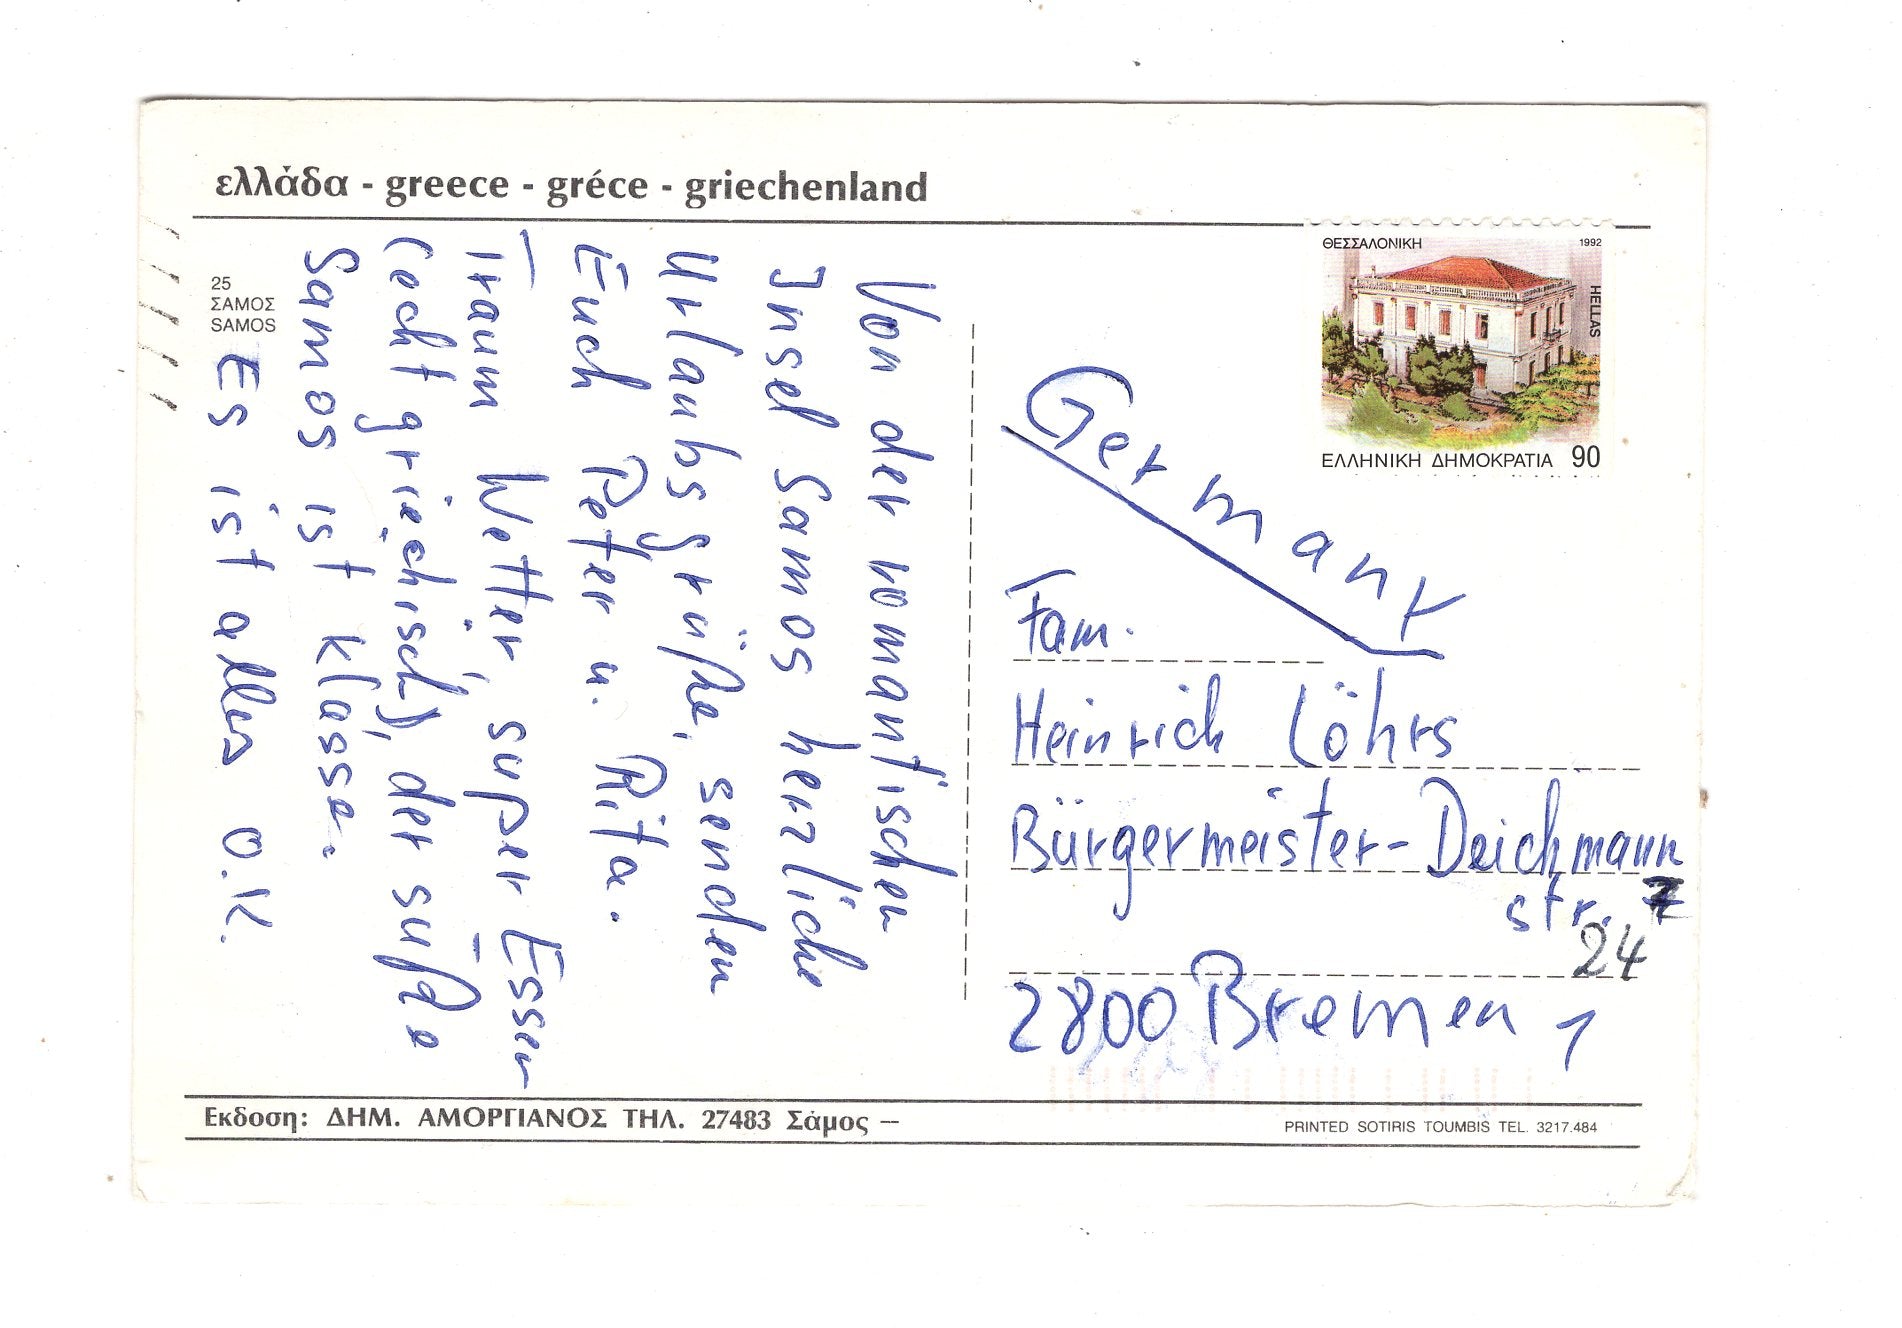 ελλάδα - greece - gréce - griechenland
25
ΣΑΜΟΣ
SAMOS
Von der romantischen
Insel Samos herzliche
Urlaubsgrüße, senden
Euch Peter u. Rita.
Traum Wetter, super Essen
(echt griechisch), der süße
Samos ist klasse.
Es ist alles O.K.
ΘΕΣΣΑΛΟΝΙΚΗ 1992
HELLAS
ΕΛΛΗΝΙΚΗ ΔΗΜΟΚΡΑΤΙΑ 90
Germany
Fam.
Heinrich Löhrs
Bürgermeister-Deichmann
str.
24
2800 Bremen 1
Εκδοση: ΔΗΜ. ΑΜΟΡΓΙΑΝΟΣ ΤΗΛ. 27483 Σάμος —
PRINTED SOTIRIS TOUMBIS TEL. 3217.484